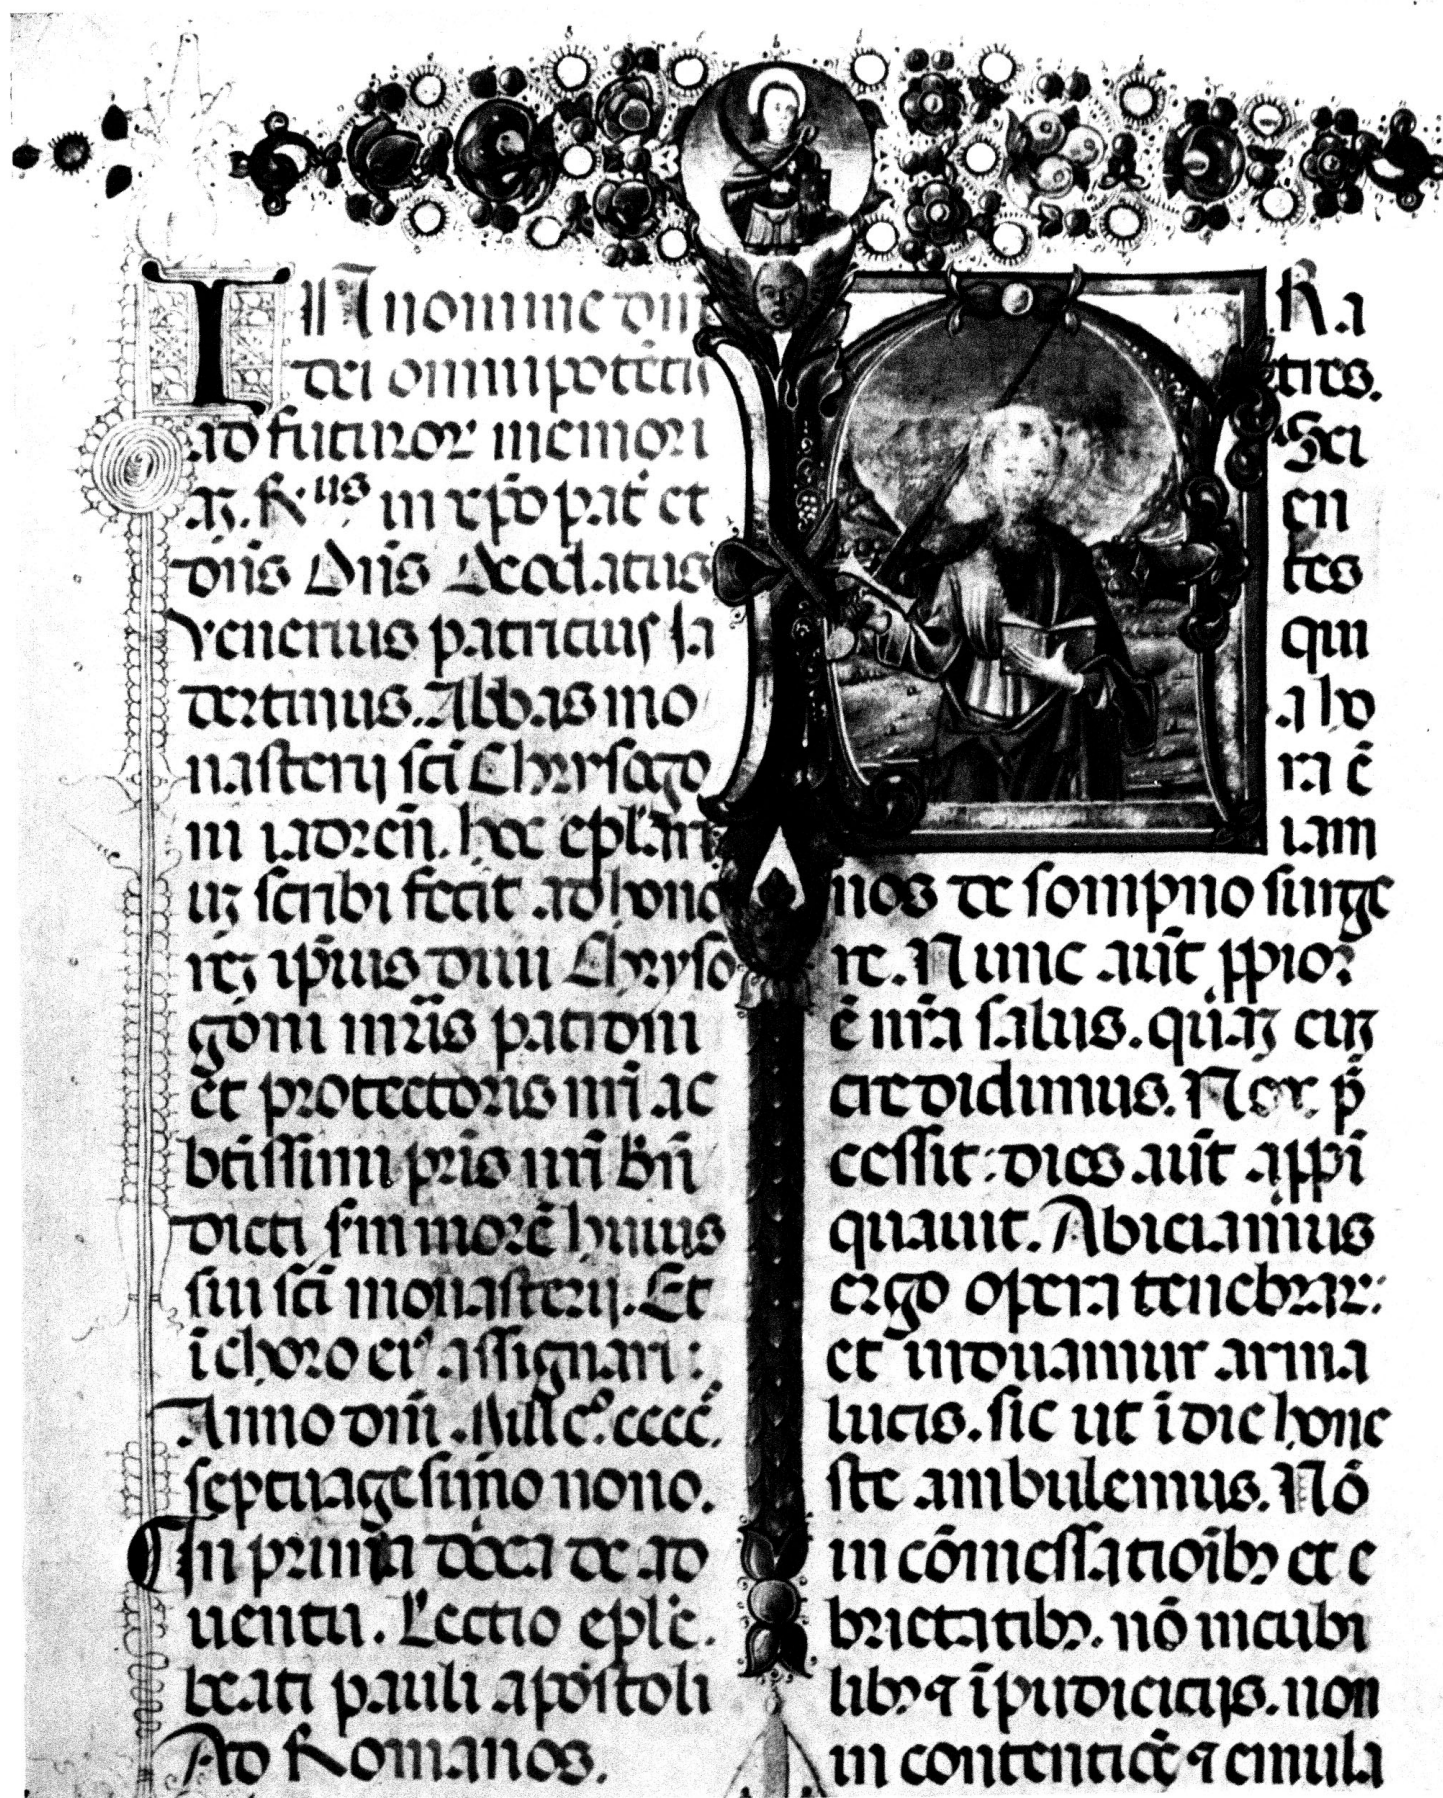 IN nomine dnī
dei omnipotētis
ad futuror memori
aʒ. R.us in xp̄o pat̄ et
dn̄s Dn̄s Deodatus
Venerius patricius Ia
dertinus. Abbas mo
nasterij sc̄i Chrysogo
ni iadreñ. hoc epl̄ari
uʒ scribi fecit ad hono
reʒ ip̄ius diui Chryso
goni mr̄is patroni
et protectoris nr̄i ac
btīssimi pr̄is nr̄i Bn̄
dicti fm morē huius
sui sc̄i monasterij. Et
ī choro eiꝰ assignari :
Anno dn̄i. Mill̄o. cccc.
septuagesimo nono.
In prima dn̄ca de ad
uentu. Lectio epl̄e.
beati pauli apostoli
Ad Romanos.
FRa
tres.
Sci
en
tes
qui
a ho
ra ē
iam
nos de sompno surge
re. Nunc aūt ꝓpior
ē nr̄a salus. quaʒ cuʒ
credidimus. Nox p̄
cessit: dies aūt appī
quauit. Abiciamus
ergo opera tenebrar:
et induamur arma
lucis. sic ut ī die hone
ste ambulemus. Nō
in cōmessatioībꝫ et e
brietatibꝫ. nō in cubi
libꝫ ⁊ īpudicitijs. non
in contentiōe ⁊ emula